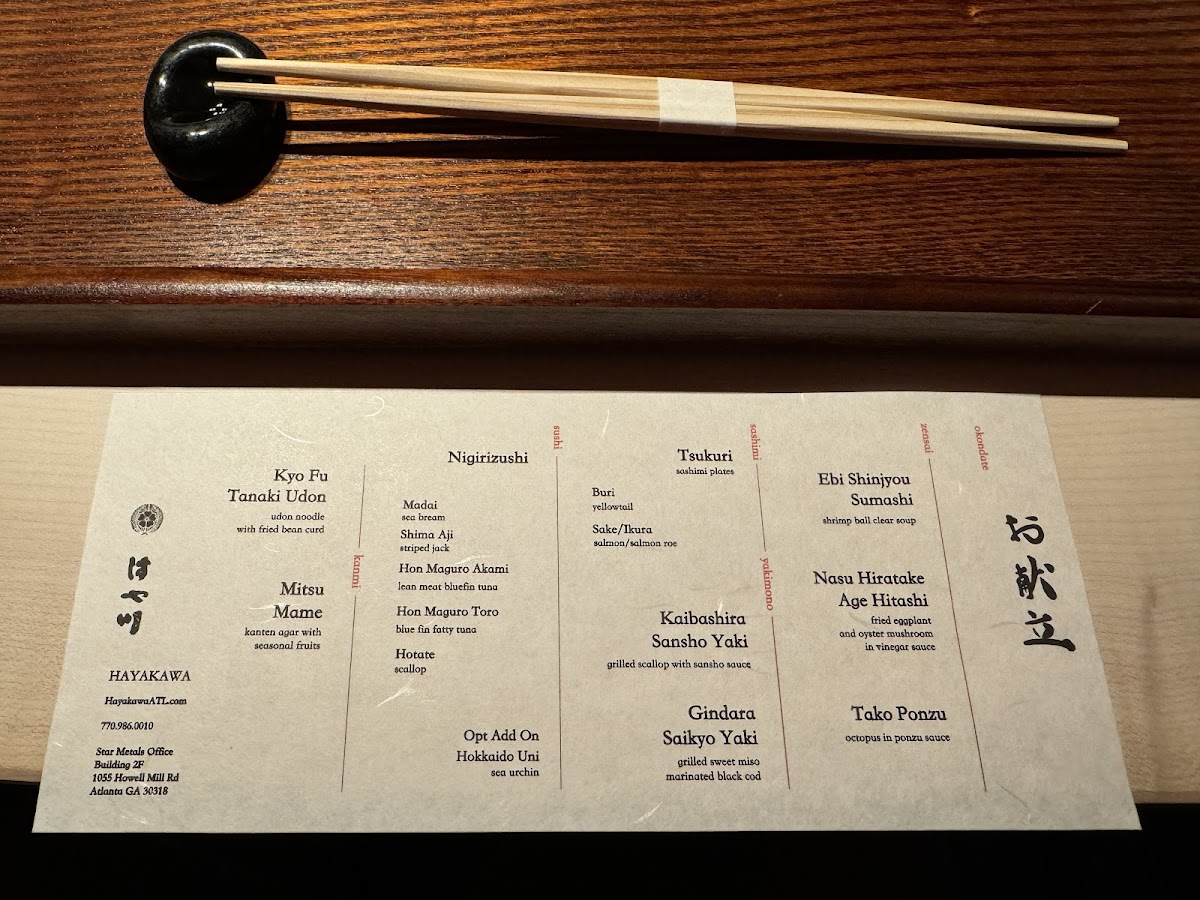 okondate
お献立
zensai
Ebi Shinjyou
Sumashi
shrimp ball clear soup
Nasu Hiratake
Age Hitashi
fried eggplant
and oyster mushroom
in vinegar sauce
Tako Ponzu
octopus in ponzu sauce
sashimi
Tsukuri
sashimi plates
Buri
yellowtail
Sake/Ikura
salmon/salmon roe
yakimono
Kaibashira
Sansho Yaki
grilled scallop with sansho sauce
Gindara
Saikyo Yaki
grilled sweet miso
marinated black cod
sushi
Nigirizushi
Madai
sea bream
Shima Aji
striped jack
Hon Maguro Akami
lean meat bluefin tuna
Hon Maguro Toro
blue fin fatty tuna
Hotate
scallop
Opt Add On
Hokkaido Uni
sea urchin
Kyo Fu
Tanaki Udon
udon noodle
with fried bean curd
kanmi
Mitsu
Mame
kanten agar with
seasonal fruits
HAYAKAWA
HayakawaATL.com
770.986.0010
Star Metals Office
Building 2F
1055 Howell Mill Rd
Atlanta GA 30318